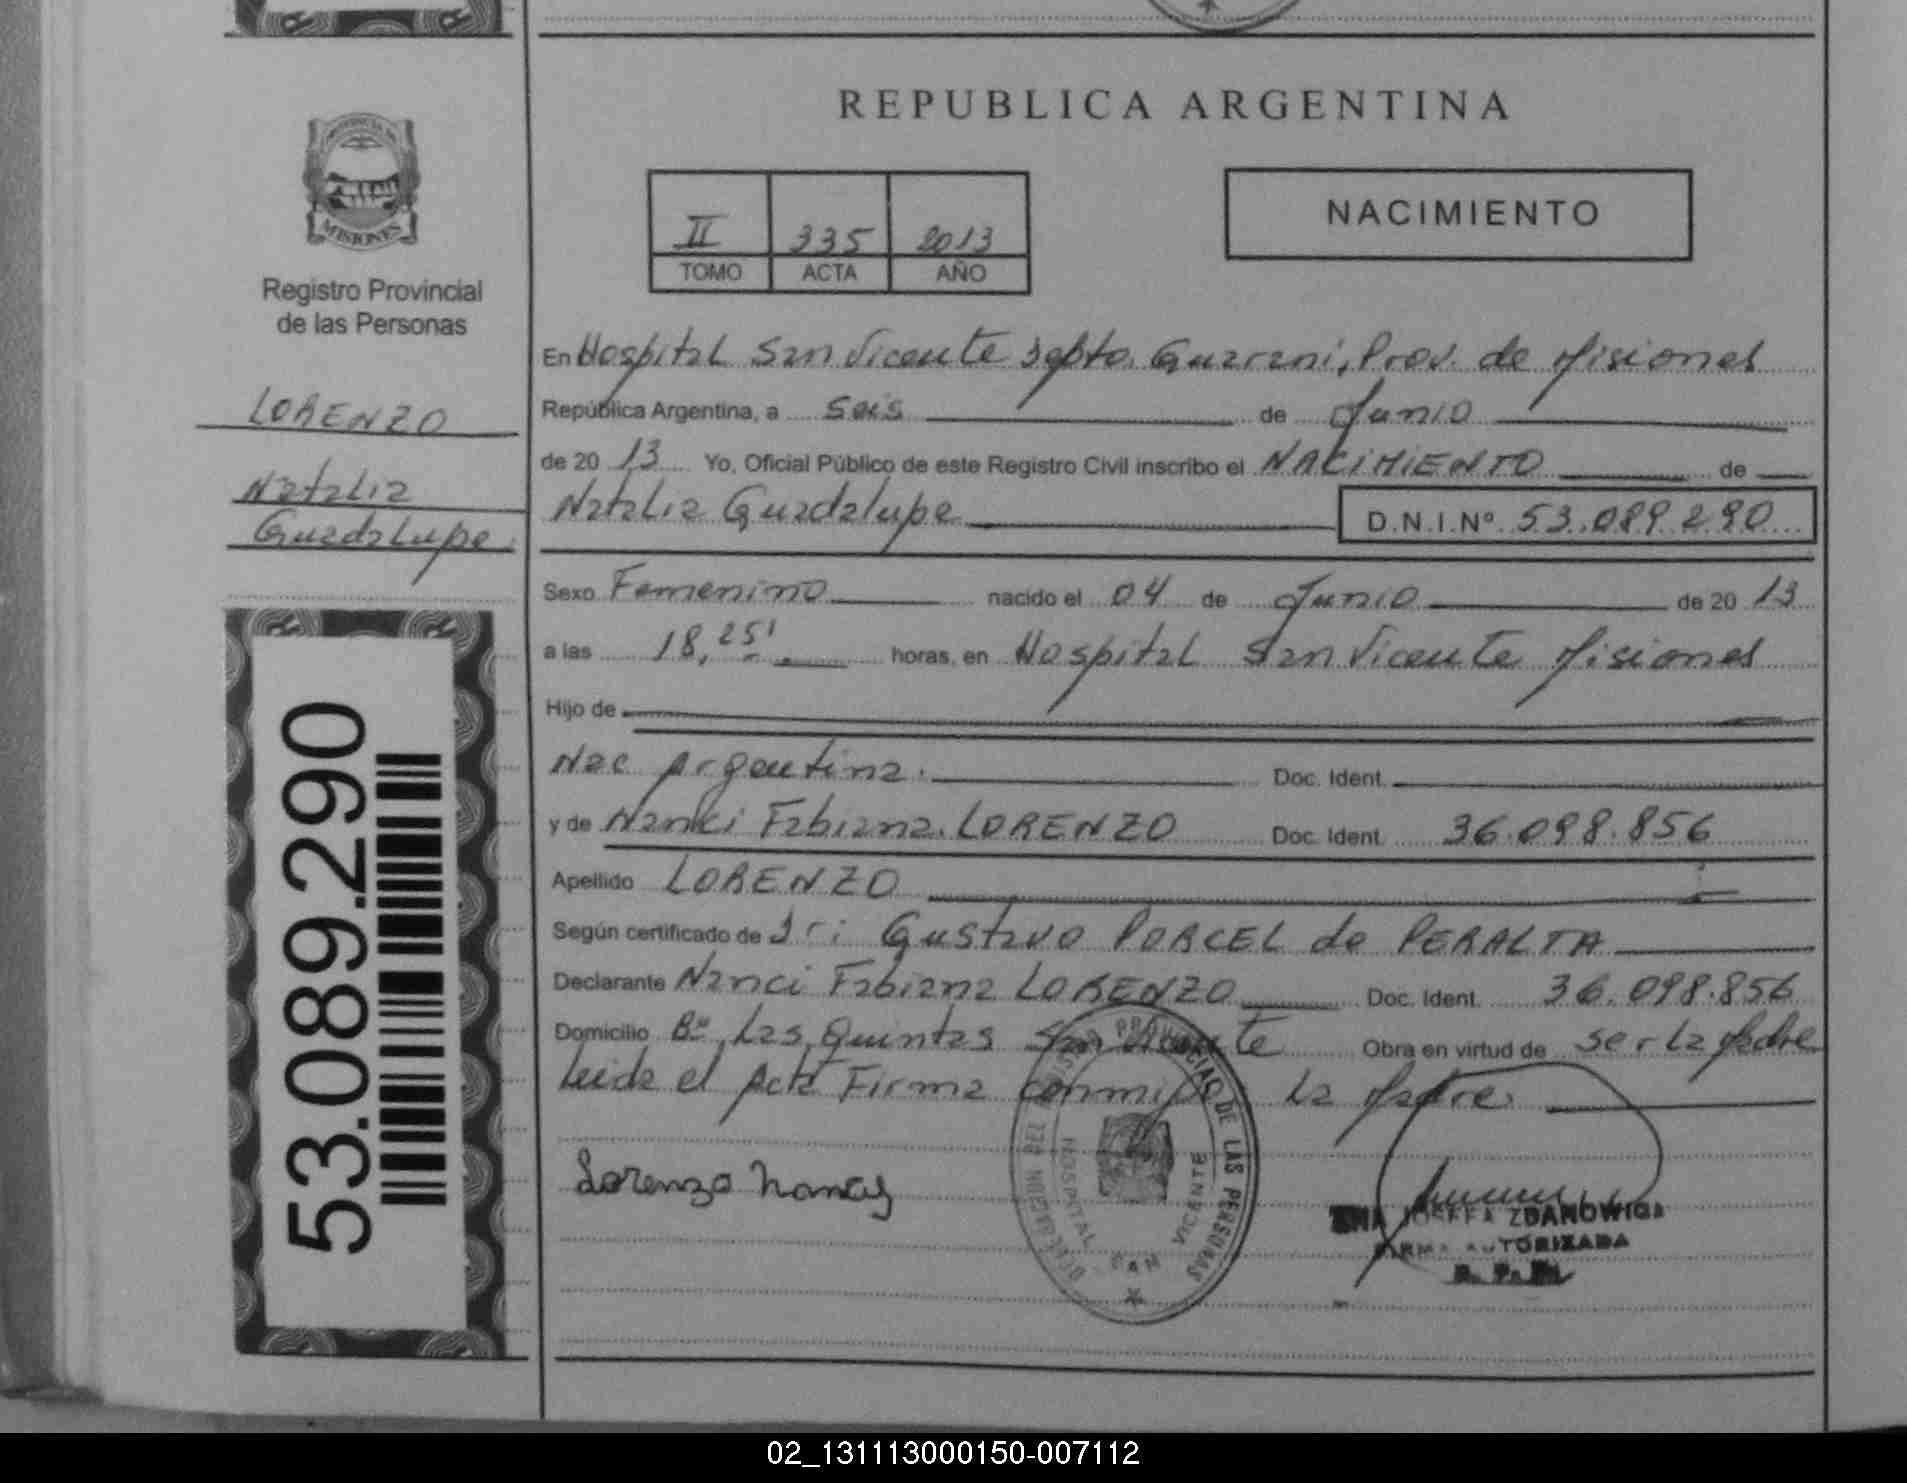 REPUBLICA ARGENTINA
PROVINCIA DE
MISIONES
Registro Provincial
de las Personas
LORENZO
Natalia
Guadalupe
53.089.290
II 335 2013
TOMO ACTA AÑO
NACIMIENTO
En Hospital San Vicente Depto. Guarani, Prov. de Misiones
República Argentina, a seis de Junio
de 20 13 Yo, Oficial Público de este Registro Civil inscribo el NACIMIENTO de
Natalia Guadalupe D.N.I.Nº 53.089.290
Sexo Femenino nacido el 04 de Junio de 20 13
a las 18,25' horas, en Hospital San Vicente Misiones
Hijo de
Nac Argentina. Doc. Ident.
y de Nanci Fabiana LORENZO Doc. Ident. 36.098.856
Apellido LORENZO
Según certificado de Dr: Gustavo PORCEL de PERALTA
Declarante Nanci Fabiana LORENZO Doc. Ident. 36.098.856
Domicilio Bº Las Quintas San Vicente Obra en virtud de ser la Madre
Leida el Acta Firma conmigo la Madre.
Lorenzo Nancy
PROVINCIAL DE LAS PERSONAS
HOSPITAL SAN VICENTE
JOSEFA ZDANOWICZ
FIRMA AUTORIZADA
02_131113000150-007112